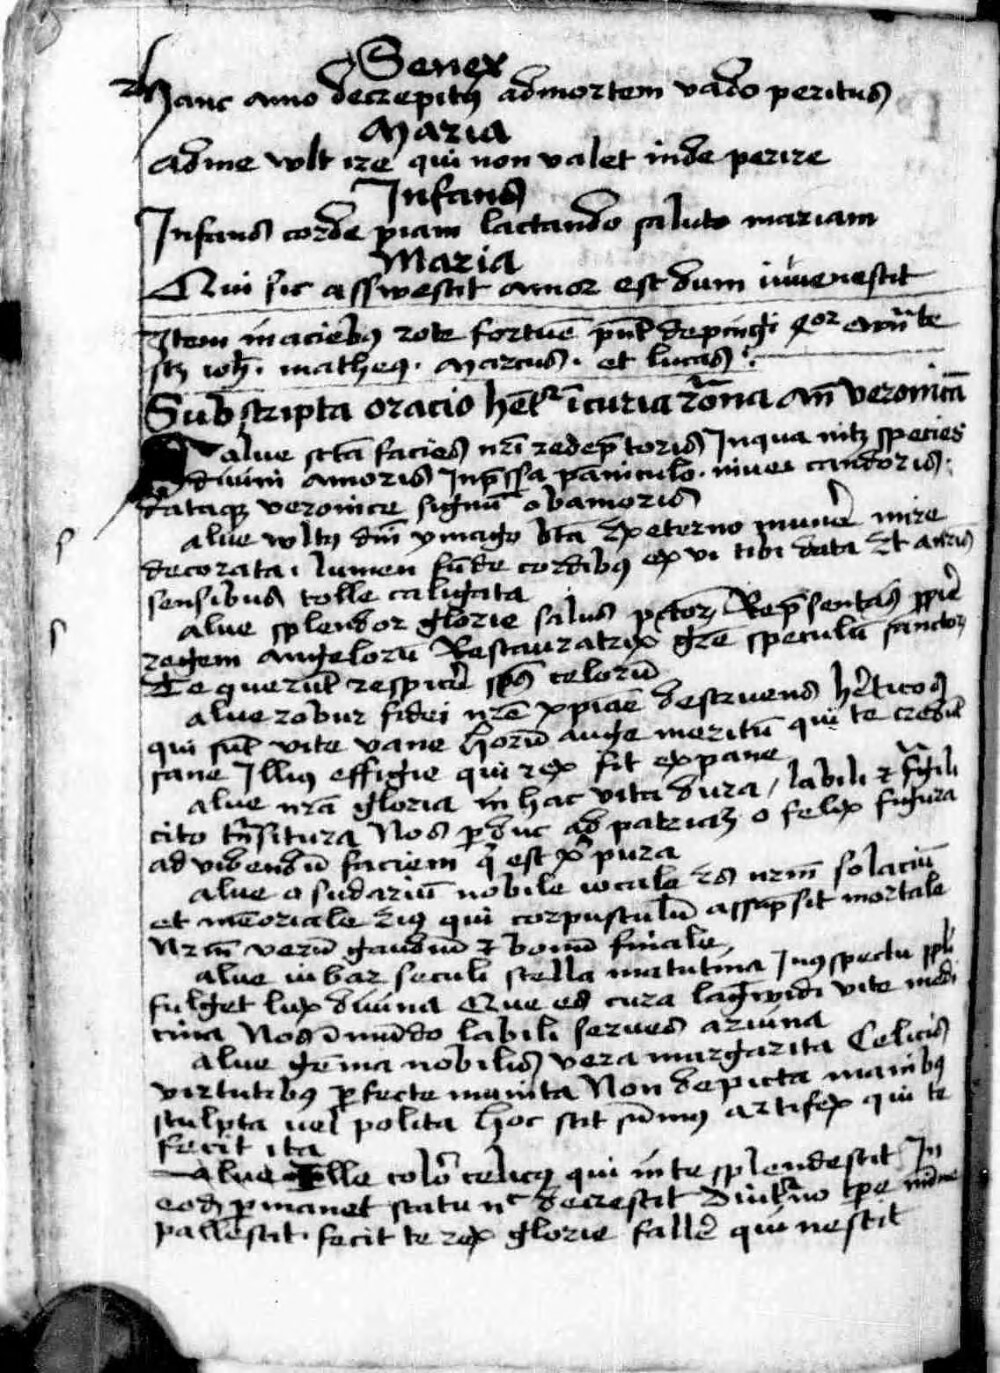 Senex
Hanc anno decrepitus ad mortem vado peritus
Maria
Ad me wlt ire qui non valet inde perire
Infans
Infans corde piam lactando saluto mariam
Maria
Qui sic asswescit amor est dum iuvenescit
Item in aciebus rote fortune pnt depingi qor ewanste
scz ioh. matheus. Marcus. et lucas :
Subscripta oracio het in curia roma an veronica
alve scta facies nri redemptoris In qua nitz species
divini amoris Inpssa panniculo. nivei candoris.
dataqz veronice signu ob amoris
alve wltus dni ymago bta Ex eterno muner mire
decorata. lumen funde cordibus ex vi tibi data Et a nris
sensibus tolle caligata
alve splendor glorie salus pctorz Repsentas ppie
regem angeloru Restauratrix gre speculu sanctorz
Te querut respicer spus celoru
alve robur fidei nre xpiae destruens hreticos
qui sut vite vane horu auge meritu qui te credut
sane Illius effigie qui rex fit ex pane
alve nra gloria in hac vita dura, labili et fragili
cito tnsitura Nos perduc ad patriam o felix figura
ad videndu faciem q est xpi pura
alve o sudariu nobile iocale Es nrm solaciu
et memoriale eius qui corpusculu assupsit mortale
Nrm veru gaudiu et bonu finale,
alve iubar seculi stella matutina In cuius spectu ppli
fulget lux divina Que es cura langwidi vite medi
cina Nos in mundo labili serves a ruina
alve gemma nobilis vera margarita Celicis
virtutibus perfecte munita Non depicta manibus
sculpta vel polita hoc scit summus artifex qui te
fecit ita
alve Ille color celicus qui in te splendescit In
eodem permanet statu nec decrescit Diuturno tpe minime
pallescit. fecit te rex glorie faller qui nescit